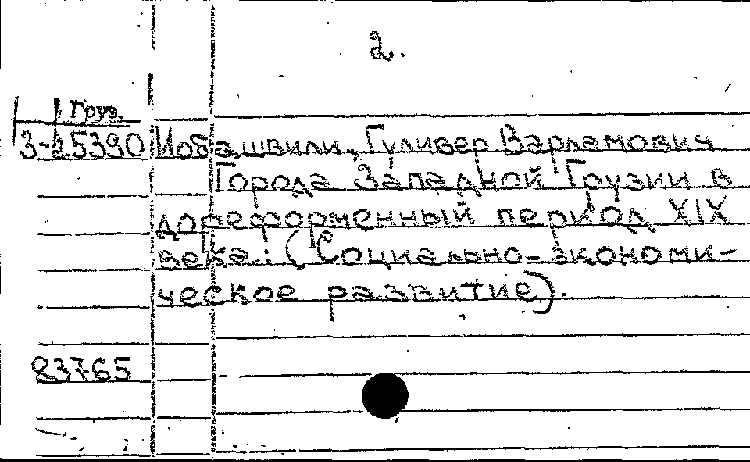 2.
Груз.
3-25390 Иобашвили, Гуливер Варламович
Города Западной Грузии в
дореформенный период XIX
века: (Социально-экономи-
ческое развитие).
83765